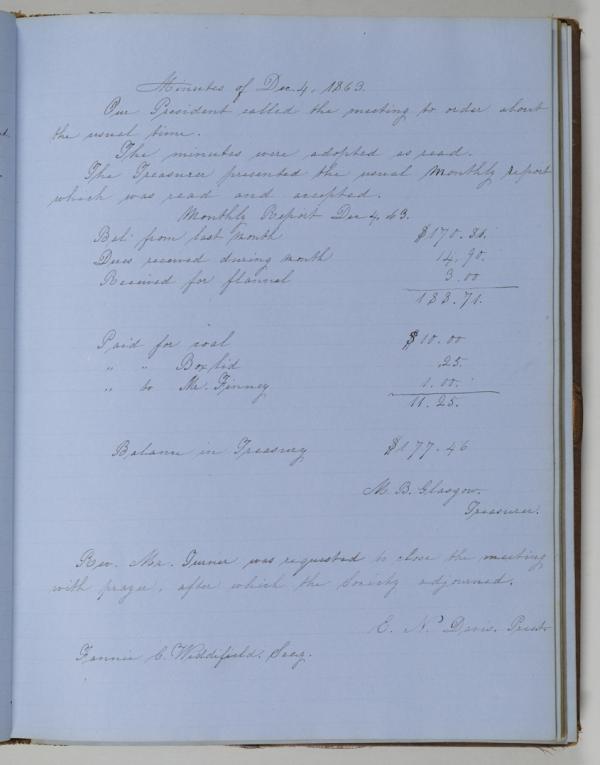 Minutes of Dec. 4, 1863.
Our President called the meeting to order about
the usual time.
The minutes were adopted as read.
The Treasurer presented the usual Monthly report
which was read and accepted.
Monthly Report Dec 4, 63.
Bal. from last Month $170.81.
Dues received during month 14.90.
Received for flannel 3.00
188.71.
Paid for coal $10.00
" " Box lid .25.
" to Mr. Finney 1.00.
11.25.
Balance in Treasury $177.46
M. B. Glasgow.
Treasurer.
Rev. Mr. Turner was requested to close the meeting
with prayer, after which the Society adjourned.
E. N. Davis. Prest.
Fannie C. Widdifield. Secy.